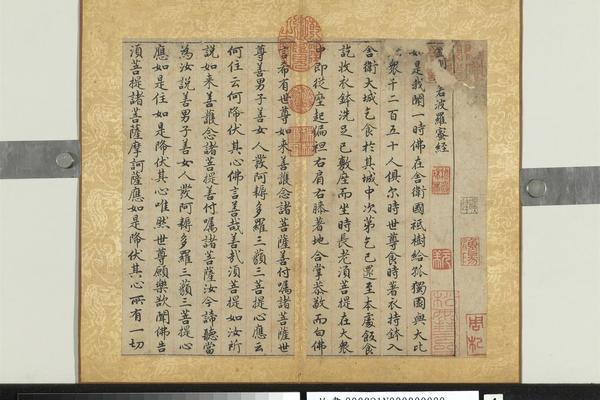 若波羅蜜經
如是我聞一時佛在舍衛國祇樹給孤獨園與大比
衆千二百五十人俱尔時世尊食時著衣持鉢入
舍衛大城乞食於其城中次第乞已還至本處飯食
訖收衣鉢洗足已敷座而坐時長老須菩提在大衆
中即從座起偏袒右肩右膝著地合掌恭敬而白佛
言希有世尊如來善護念諸菩薩善付囑諸菩薩世
尊善男子善女人發阿耨多羅三藐三菩提心應云
何住云何降伏其心佛言善哉善哉須菩提如汝所
說如來善護念諸菩提善付囑諸菩薩汝今諦聽當
為汝說善男子善女人發阿耨多羅三藐三菩提心
應如是住如是降伏其心唯然世尊願樂欲聞佛告
須菩提諸菩薩摩訶薩應如是降伏其心所有一切